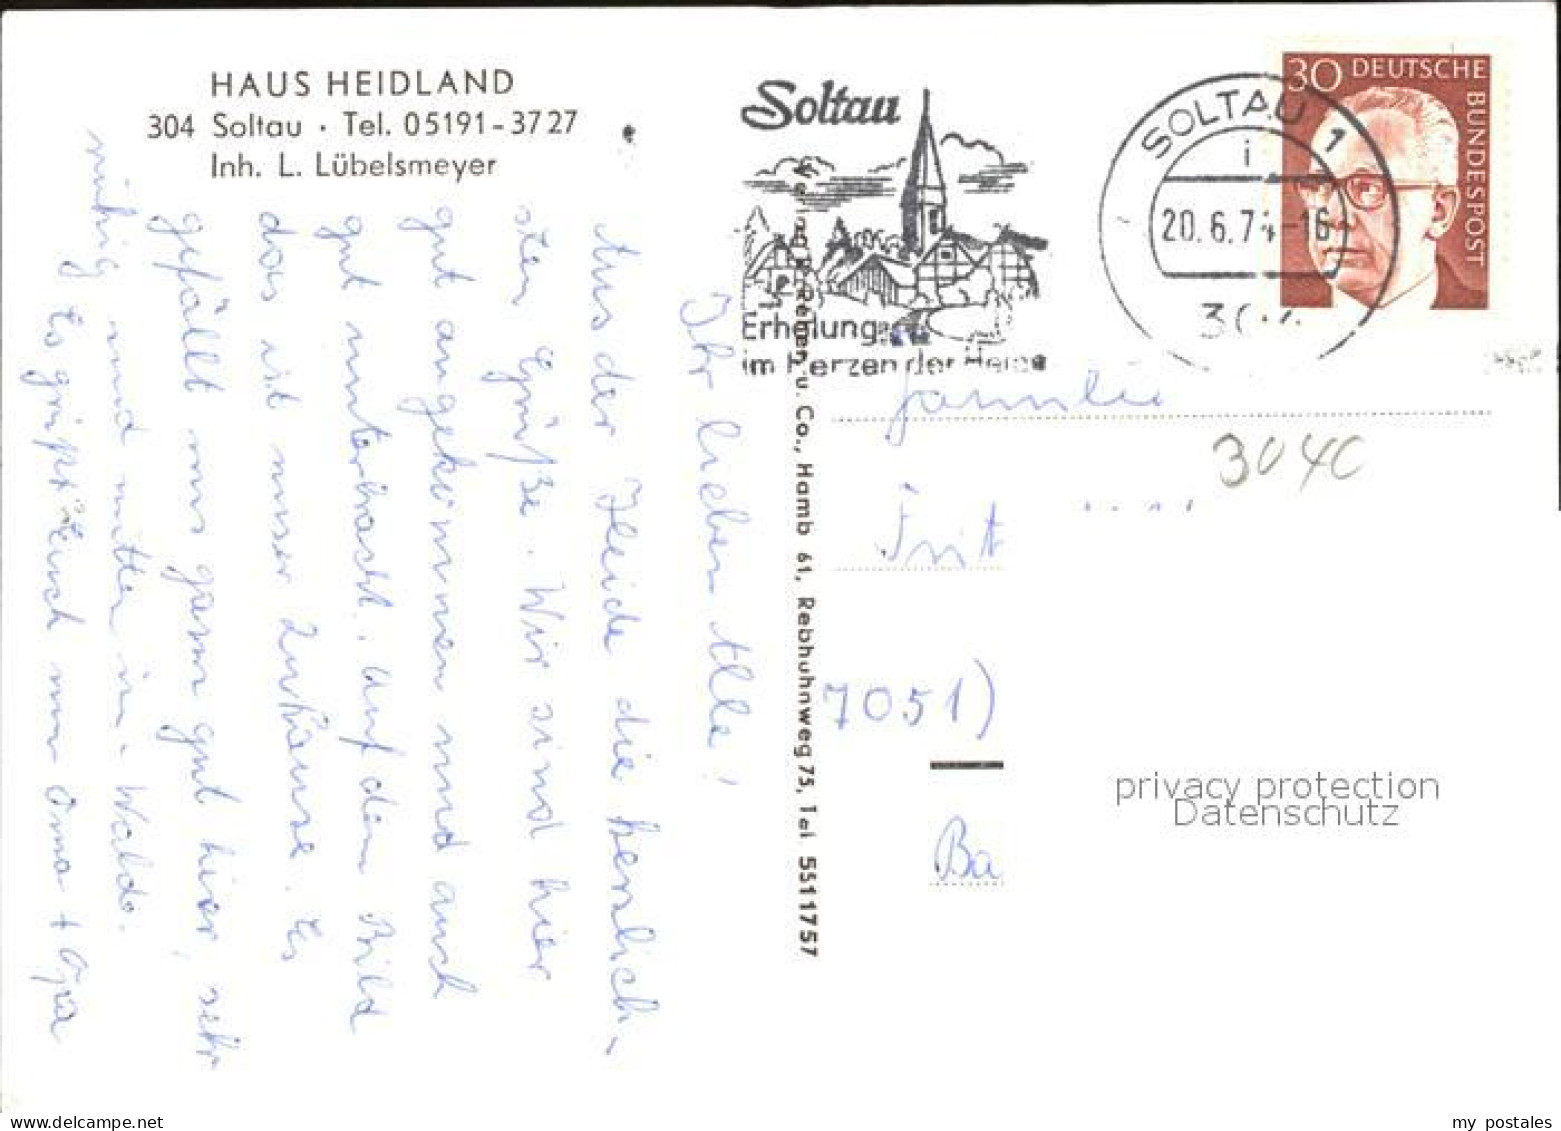 HAUS HEIDLAND
304 Soltau · Tel. 05191-3727
Inh. L. Lübelsmeyer
Soltau
Erholung
im Herzen der Heide
SOLTAU 1
i
20.6.74-16
304
30 DEUTSCHE
BUNDESPOST
Ihr lieben Alle!
Aus der Heide die herzlich-
sten Grüße. Wir sind hier
gut angekommen und auch
gut unterbracht. Auf dem Bild
das ist unser Zuhause. Es
gefällt uns ganz gut hier, sehr
ruhig und mitten im Walde.
Es grüßt Euch nur Oma + Opa
u. Co., Hamb 61, Rebhuhnweg 75, Tel. 5511757
Familie
3040
Frit
7051)
Ba
privacy protection
Datenschutz
my postales